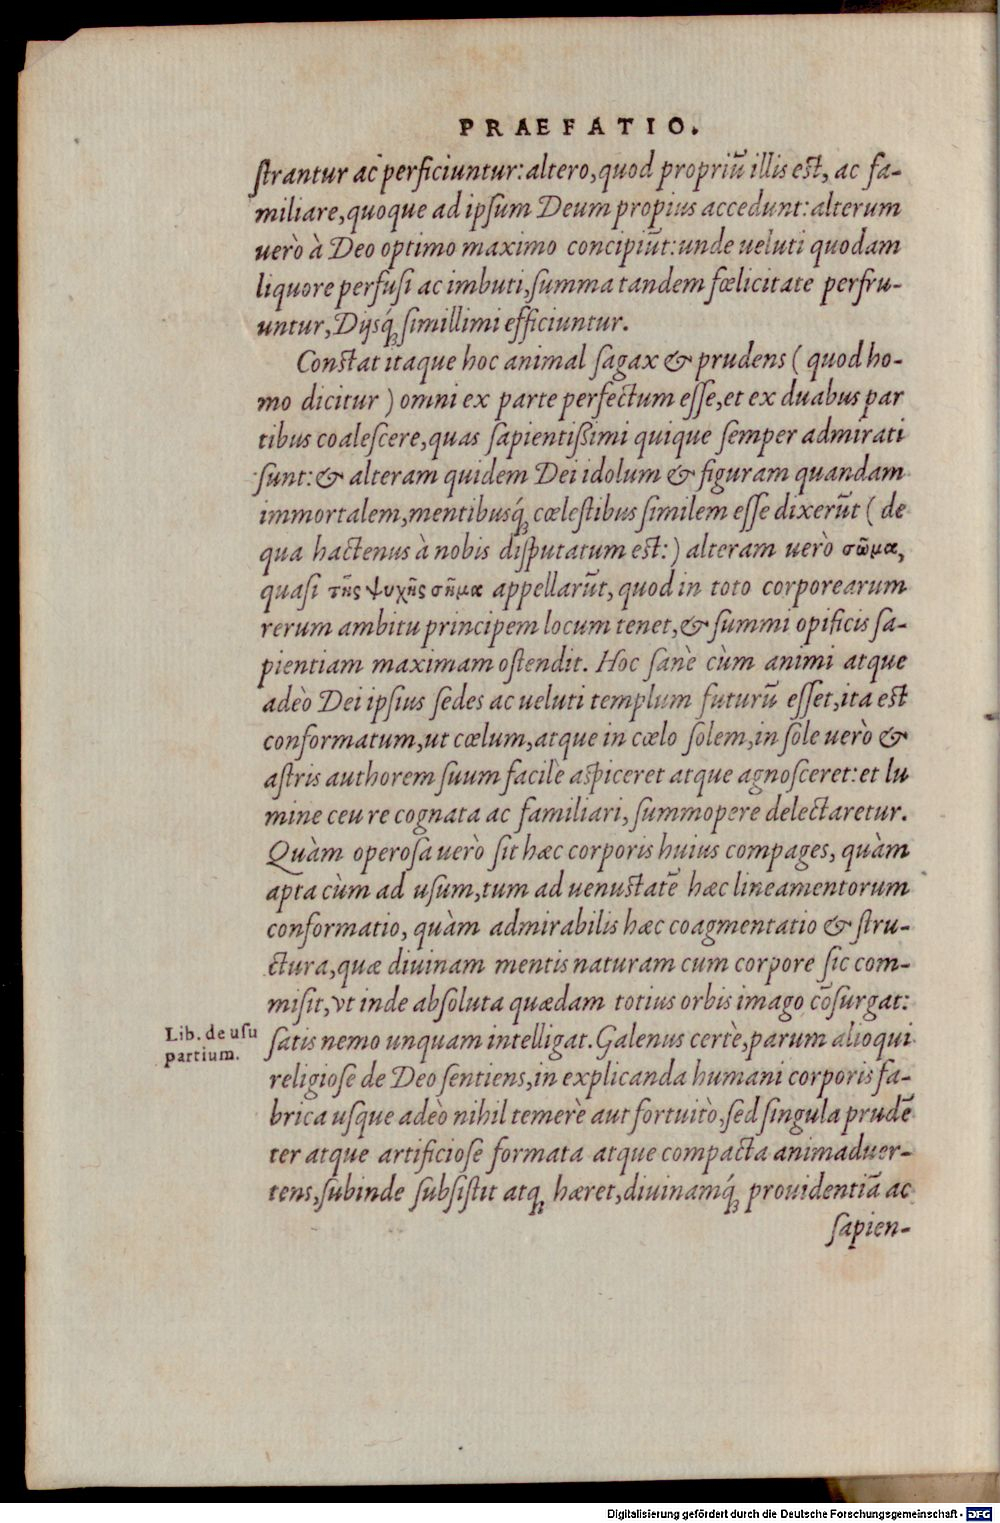 PRAEFATIO.
strantur ac perficiuntur: altero, quod propriũ illis est, ac fa-
miliare, quoque ad ipsum Deum propius accedunt: alterum
uerò à Deo optimo maximo concipiũt: unde ueluti quodam
liquore perfusi ac imbuti, summa tandem fœlicitate perfru-
untur, Dijsq́ simillimi efficiuntur.
Constat itaque hoc animal sagax & prudens ( quod ho-
mo dicitur ) omni ex parte perfectum esse, et ex duabus par
tibus coalescere, quas sapientißimi quique semper admirati
sunt: & alteram quidem Dei idolum & figuram quandam
immortalem, mentibusq́ cœlestibus similem esse dixerũt ( de
qua hactenus à nobis disputatum est: ) alteram uerò σῶμα,
quasi τῆς ψυχῆς σῆμα appellarũt, quod in toto corporearum
rerum ambitu principem locum tenet, & summi opificis sa-
pientiam maximam ostendit. Hoc sanè cùm animi atque
adeò Dei ipsius sedes ac ueluti templum futurũ esset, ita est
conformatum, ut cœlum, atque in cœlo solem, in sole uerò &
astris authorem suum facilè aspiceret atque agnosceret: et lu
mine ceu re cognata ac familiari, summopere delectaretur.
Quàm operosa uerò sit hæc corporis huius compages, quàm
apta cùm ad usum, tum ad uenustatẽ hæc lineamentorum
conformatio, quàm admirabilis hæc coagmentatio & stru-
ctura, quæ diuinam mentis naturam cum corpore sic com-
misit, vt inde absoluta quædam totius orbis imago cõsurgat:
Lib. de usu
partium.
satis nemo unquam intelligat. Galenus certè, parum alioqui
religiose de Deo sentiens, in explicanda humani corporis fa-
brica usque adeò nihil temerè aut fortuitò, sed singula prudẽ
ter atque artificiose formata atque compacta animaduer-
tens, subinde subsistit atq; hæret, diuinamq́ prouidentiã ac
sapien-
Digitalisierung gefördert durch die Deutsche Forschungsgemeinschaft - DFG